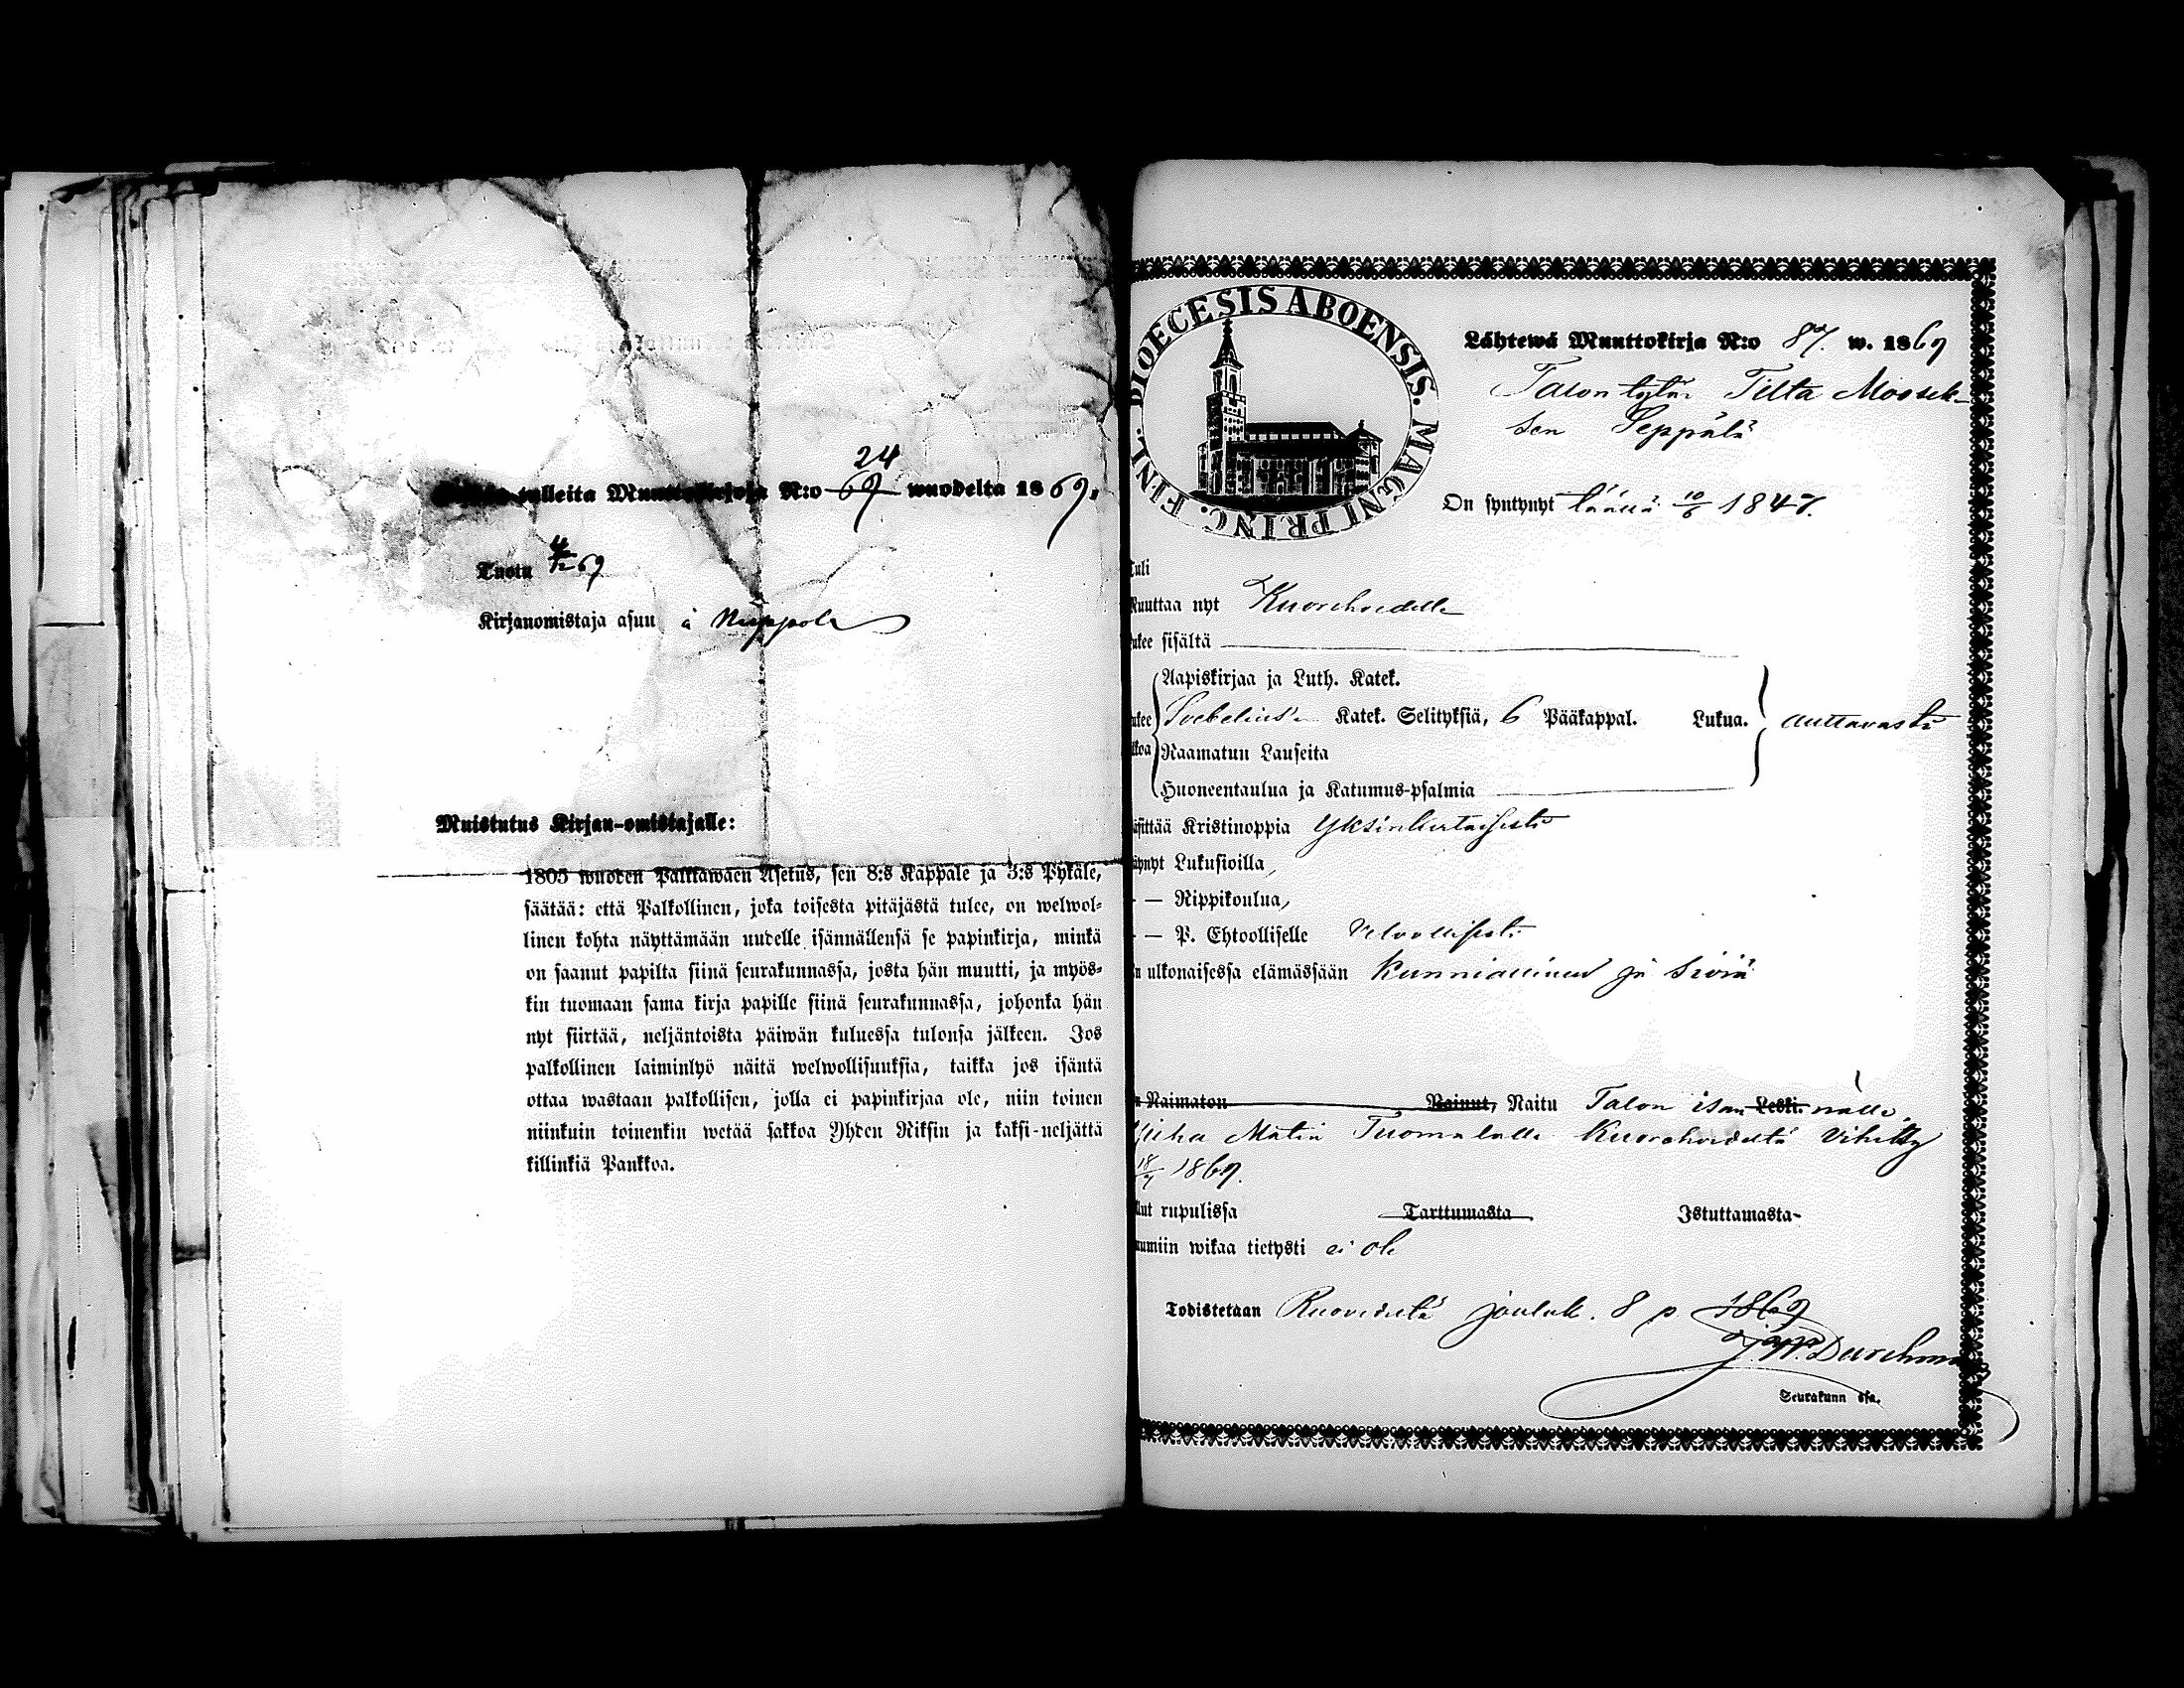 tulleita Muuttokirjoja N:o 69 24 wuodelta 1869.
Tuotu 4/12 69
Kirjanomistaja asuu
Muistutus Kirjan-omistajalle:
1805 wuoden Palkkawäen Asetus, sen 8:s Kappale ja 3:s Pykäle,
säätää: että Palkollinen, joka toisesta pitäjästä tulee, on welwol-
linen kohta näyttämään uudelle isännällensä se papinkirja, minkä
on saanut papilta siinä seurakunnassa, josta hän muutti, ja myös-
kin tuomaan sama kirja papille siinä seurakunnassa, johonka hän
nyt siirtää, neljäntoista päiwän kuluessa tulonsa jälkeen. Jos
palkollinen laiminlyö näitä welwollisuuksia, taikka jos isäntä
ottaa wastaan palkollisen, jolla ei papinkirjaa ole, niin toinen
niinkuin toinenkin wetää sakkoa Yhden Riksin ja kaksi-neljättä
killinkiä Pankkoa.
DIOECESIS ABOENSIS. MAGNI PRINC. FINL.
Lähtewä Muuttokirja N:o w. 1869
Talon tytär Tilta Moosek-
sen Seppälä
On syntynyt täällä 10/6 1847.
Tuli
Muuttaa nyt Kuorehvedelle
Lukee sisältä
Aapiskirjaa ja Luth. Katek.
Svebelius'en Katek. Selityksiä, 6 Pääkappal. Lukua. auttavasti
Raamatun Lauseita
Huoneentaulua ja Katumus-psalmia
Käsittää Kristinoppia Yksinkertaisesti
Käynyt Lukusioilla,
— — Rippikoulua,
— — P. Ehtoolliselle Velvollisesti
On ulkonaisessa elämässään Kunniallinen ja Siviä
On Naimaton Nainut, Naitu Talon isän Leski. nälle
Juha Matin Tuomalalle Kuorehvedeltä Vihitty
18/7 1869.
Ollut rupulissa Tarttumasta Istuttamasta-
Ruumiin wikaa tietysti ei ole
Todistetaan Ruovedeltä jouluk. 8 p 1869
Seurakunn